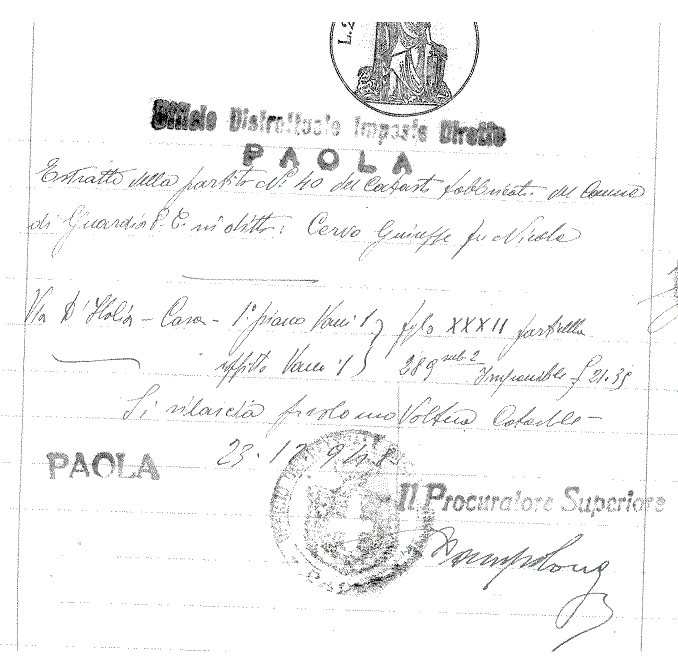 L.2
Ufficio Distrettuale Imposte Dirette
PAOLA
Estratto della partita N° 40 del Catasto fabbricati del Comune
di Guardia P. in ditta: Cervo Giuseppe fu Nicola
Via D'Italia - Casa - 1° piano Vani 1 } foglio XXXII particella
soffitto Vani 1 } 289 sub. 2 Imponibile £ 21.35
Si rilascia per uso Voltura Catastale -
23.12.948
PAOLA
Il Procuratore Superiore